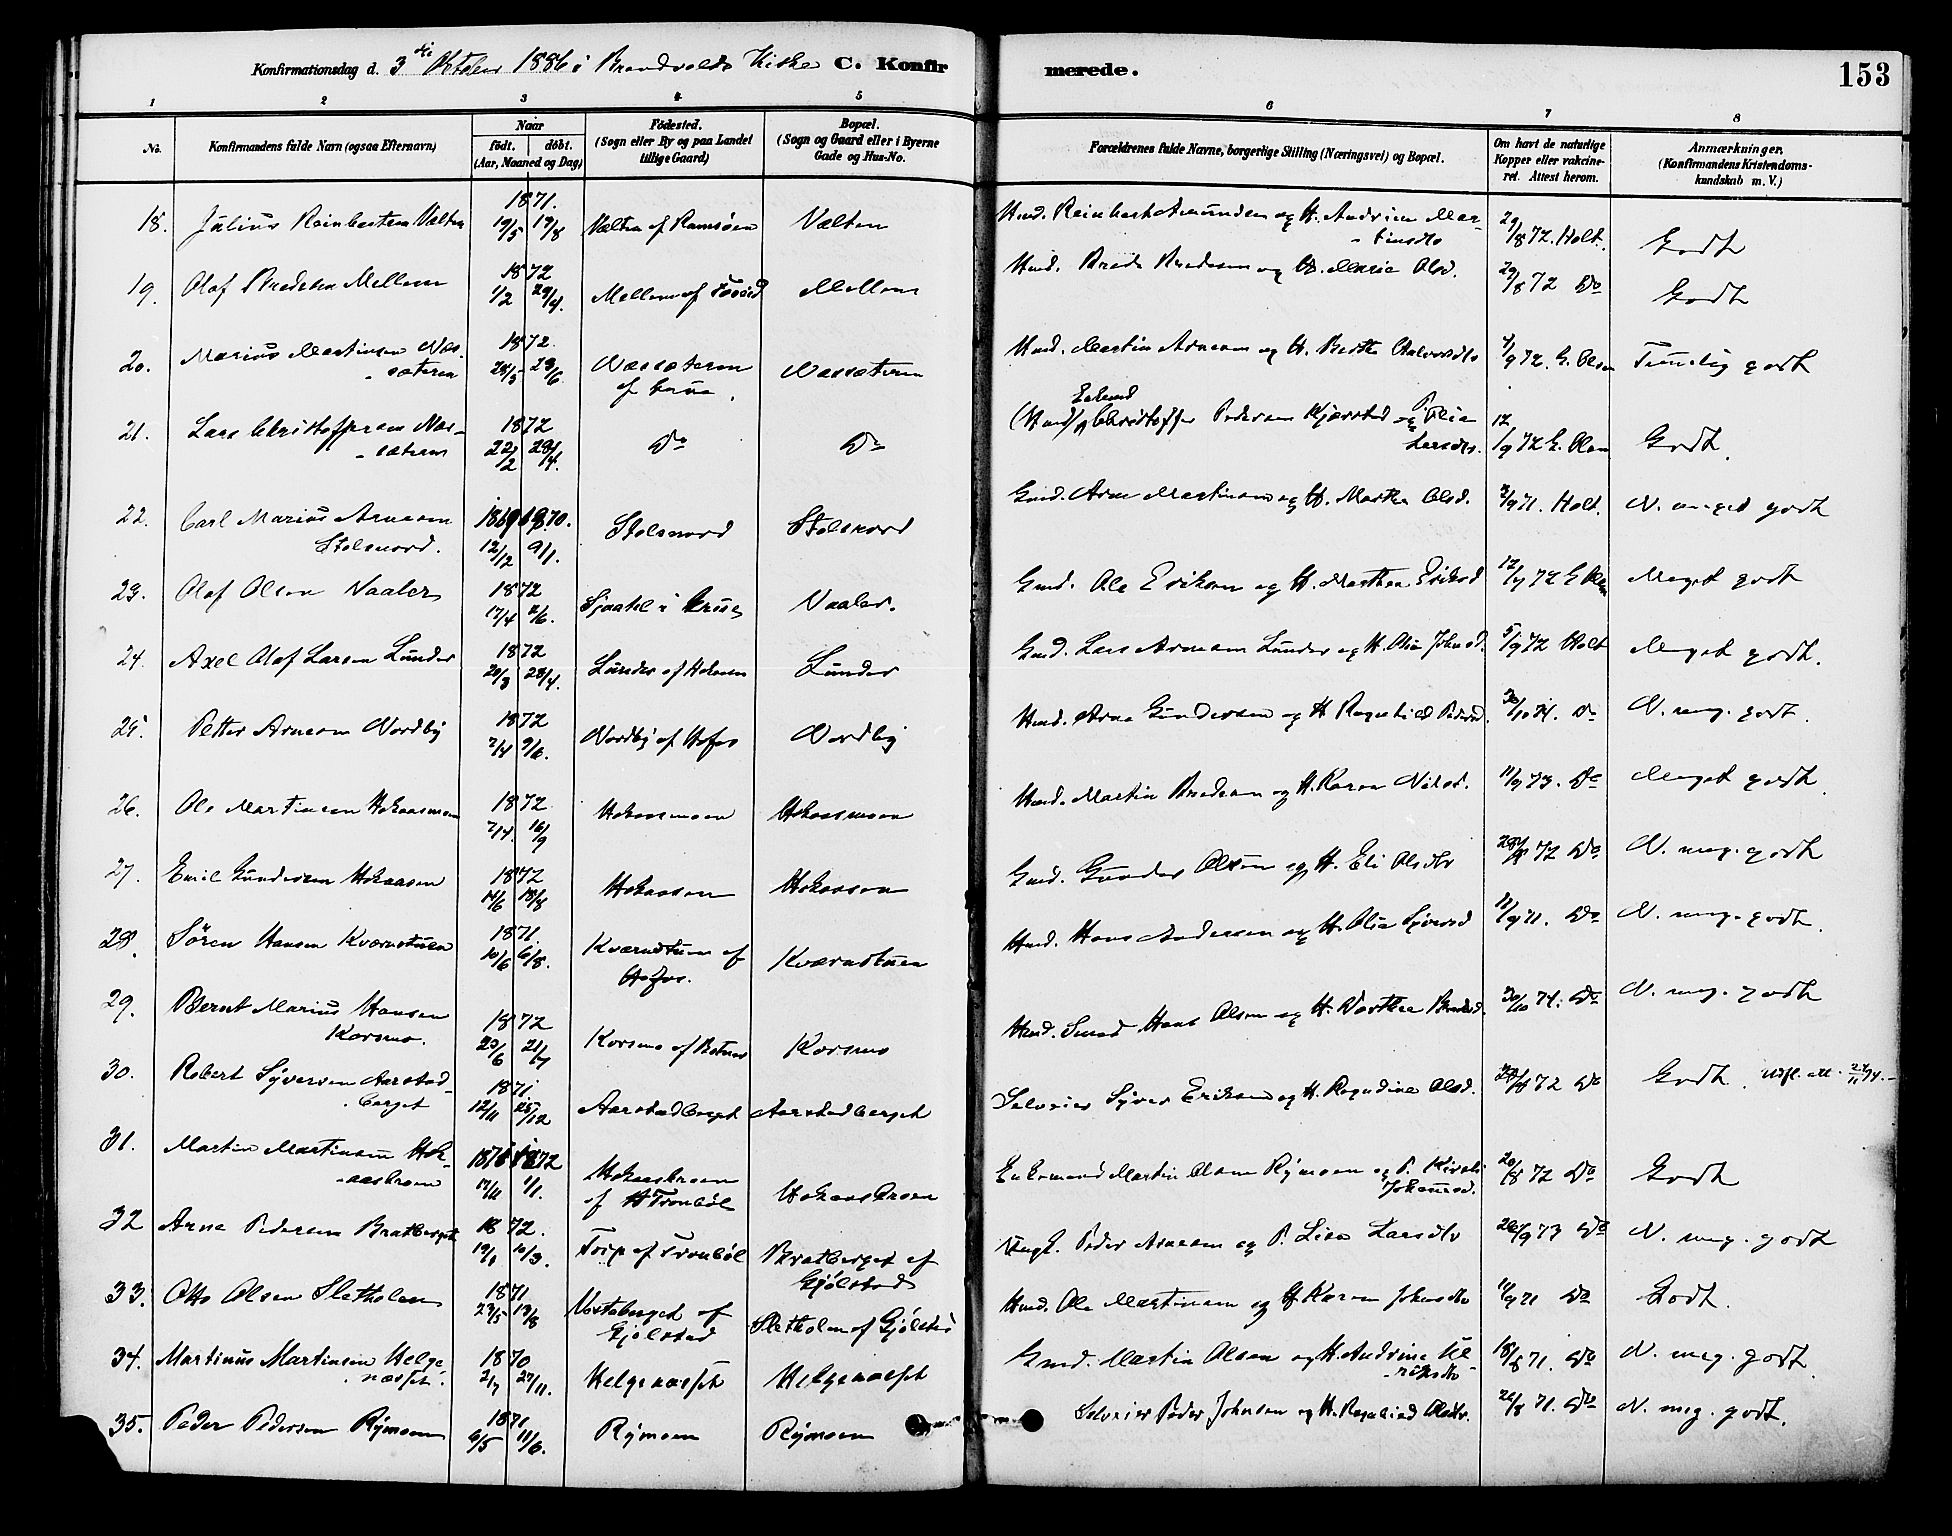 Konfirmationsdag d. 3die Oktober 1886 i Brandvolds Kirke C. Konfirmerede. 153
1 2 3 4 5 6 7 8
No. Konfirmandens fulde Navn (ogsaa Efternavn) Naar født. døbt. (Aar, Maaned og Dag) Fødested. (Sogn eller By og paa Landet tillige Gaard) Bopæl. (Sogn og Gaard eller i Byerne Gade og Hus-No. Forældrenes fulde Navne, borgerlige Stilling (Næringsvei) og Bopæl. Om havt de naturlige Kopper eller vakcineret. Attest herom. Anmærkninger. (Konfirmandens Kristendomskundskab m. V.)
18. Julius Reinhartsen Vælten 1871. 19/5 19/8 Vælten af Vælten Hmd. Reinhart Amundsen og H. Andrine Mar-
tinsdtr 29/8 72. Holt. Godt
19. Olaf Bredesen Mellem 1872 1/2 29/4. Mellem af Mellem Hmd. Brede Bredesen og H. Marie Olsd. 29/8 72 Do Godt
20. Marius Martinsen Næs-
sæteren 1872. 28/5 23/6. Næssæteren af Næssæteren Hmd. Martin Arnesen og H. Berthe Halvorsdtr 4/9 72. E. Olsen Temelig godt
21. Lars Christoffersen Næs-
sæteren 1872 22/2 28/4. Do Do (Hmd) Enkemd Christoffer Pedersen Kjærstad og P. Olia
Larsdtr. 12/9 72 E. Olsen Godt.
22. Carl Marius Arnesen
Stolsnord. 1869 1870. 12/12 9/1. Stolsnord Stolsnord Gmd. Arne Martinsen og H. Marthe Olsd. 2/9 71. Holt. N. meget godt
23. Olaf Olsen Naaler 1872 17/4 2/6. i Grue Naaler. Gmd. Ole Eriksen og H. Marthea Eriksd 12/9 72 E Olsen Meget godt
24. Axel Olaf Larsen Lunder 1872 20/3 28/4. Lunder af Hokaasen Lunder Gmd. Lars Arnesen Lunder og H. Olia Johnsd. 5/9 72 Holt Meget godt.
25. Petter Arnesen Nordby 1872 2/4 9/6. Nordby af Hofos Nordby Hmd. Arne Gundersen og H Ragnhild Pedersd. 30/10 74. Do N. meg. godt.
26. Ole Martinsen Hokaasmoen 1872 7/4. 16/9 Hokaasmoen Hokaasmoen Hmd. Martin Bredesen og H. Karen Nilsd. 11/9 73. Do Meget godt.
27. Emil Gundersen Hokaasen 1872 14/6 18/8 Hokaasen Hokaasen Gmd. Gunder Olsen og H. Eli Olsdtr 28/8 72 Do N. meg. godt
28. Søren Hansen Kværnstuen 1871. 10/6 6/8. Kværnstuen af
Hofos. Kværnstuen Hmd. Hans Andersen og H. Olia Syversd 11/9 71. Do N. meg. godt.
29. Bernt Marius Hansen
Korsmo. 1872 23/6 21/7 Korsmo af Korsmo Hmd. Smed Hans Olsen og H. Dorthea Bredesd. 30/10 74. Do N. meg. godt
30. Robert Syversen Aarstad-
berget 1871. 12/11 25/12 Aarstadberget Aarstadberget Selveier Syver Eriksen og H. Ragndine Olsd. 28/8 72 Do Godt. Udfl. att. 27/11 94.
31. Martin Martinsen Hok-
aasbraen 1871 1872 17/11 1/1. Hokaasbraen
af Tronbøl Hokaasbraen Enkemand Martin Olsen Rymoen og P. Kirsti
Johannesd. 20/8 72 Do Godt
32 Arne Pedersen Bratberget 1872. 19/1 10/3. Torp af Tronbøl Bratberget af
Gjølstad Ungk. Peder Arnesen og P. Lisa Larsdtr 26/9 73 Do N. meg. godt
33. Otto Olsen Sletholen 1871 23/5 13/8 Vesteberget af
Gjølstad Sletholen af Gjølstad Hmd. Ole Martinsen og H Karen Johnsdtr 11/9 71 Do Godt.
34. Martinus Martinsen Helge-
næsset. 1870 2/7 27/11. Helgenæsset Helgenæsset Gmd. Martin Olsen og H. Andrine Ul-
riksdtr 18/8 71. Do N. meg. godt.
35. Peder Pedersen Rymoen 1871 6/5 11/6. Rymoen Rymoen Selveier Peder Johnsen og H. Ragnhild Olsdtr. 26/8 71. Do N. meg. godt.